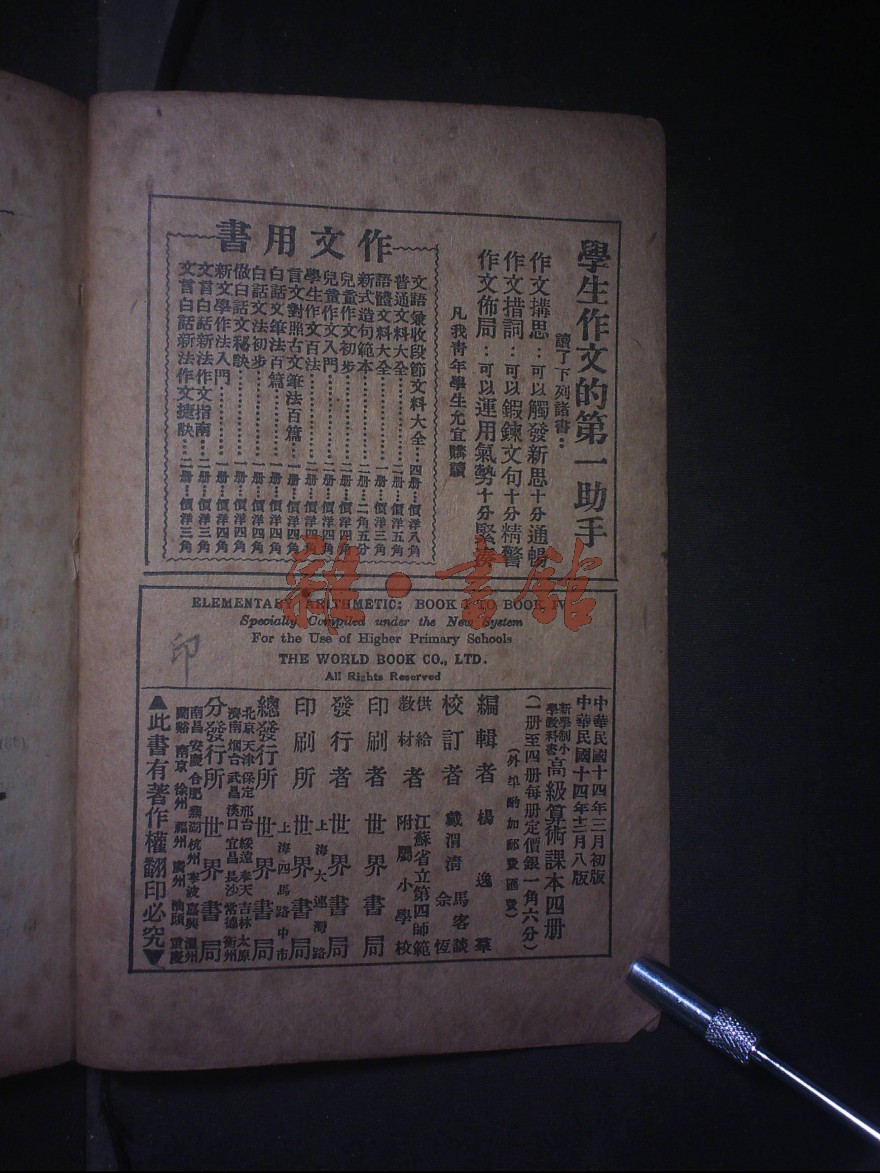 學生作文的第一助手
讀了下列諸書：
作文構思：可以觸發新思十分通暢
作文措詞：可以鍜鍊文句十分精警
作文佈局：可以運用氣勢十分緊湊
凡我青年學生允宜購讀
作文用書
文語彙收段節文料大全…四册…價洋八角
普通文料大全…二册…價洋五角
語體文料大全…一册…價洋三角
新式造句範本…二册…二角五分
兒童作文初步…二册…價洋四角
兒童作文入門…二册…價洋四角
學生作文百法…二册…價洋四角
言文對照古文筆法百篇…一册…價洋四角
白話文筆法百篇…一册…價洋四角
白話文法初步…一册…價洋四角
做白話文秘訣…一册…價洋四角
新文學作法入門…一册…價洋四角
文言白話新法作文指南…二册…價洋三角
文言白話新法作文捷訣…二册…價洋三角
雜·書館
ELEMENTARY ARITHMETIC: BOOK I TO BOOK IV
Specially Compiled under the New System
For the Use of Higher Primary Schools
THE WORLD BOOK CO., LTD.
All Rights Reserved
印
中華民國十四年三月初版
中華民國十四年十二月八版
新學制小學教科書高級算術課本四册
（一册至四册每册定價銀一角六分）
（外埠酌加郵費匯費）
編輯者 楊逸羣
校訂者 戴渭清 馬客談 余恆
供給教材者 江蘇省立第四師範附屬小學校
印刷者 世界書局
發行者 世界書局
印刷所 上海大連灣路 世界書局
總發行所 上海四馬路中市 世界書局
北京 天津 保定 邢台 綏遠 奉天 吉林 太原
濟南 烟台 武昌 漢口 宜昌 長沙 常德 衡州
分發行所 世界書局
南昌 安慶 合肥 蕪湖 杭州 寧波 嘉興 溫州
蘭谿 南京 徐州 福州 廣州 汕頭 重慶
▲此書有著作權翻印必究▼